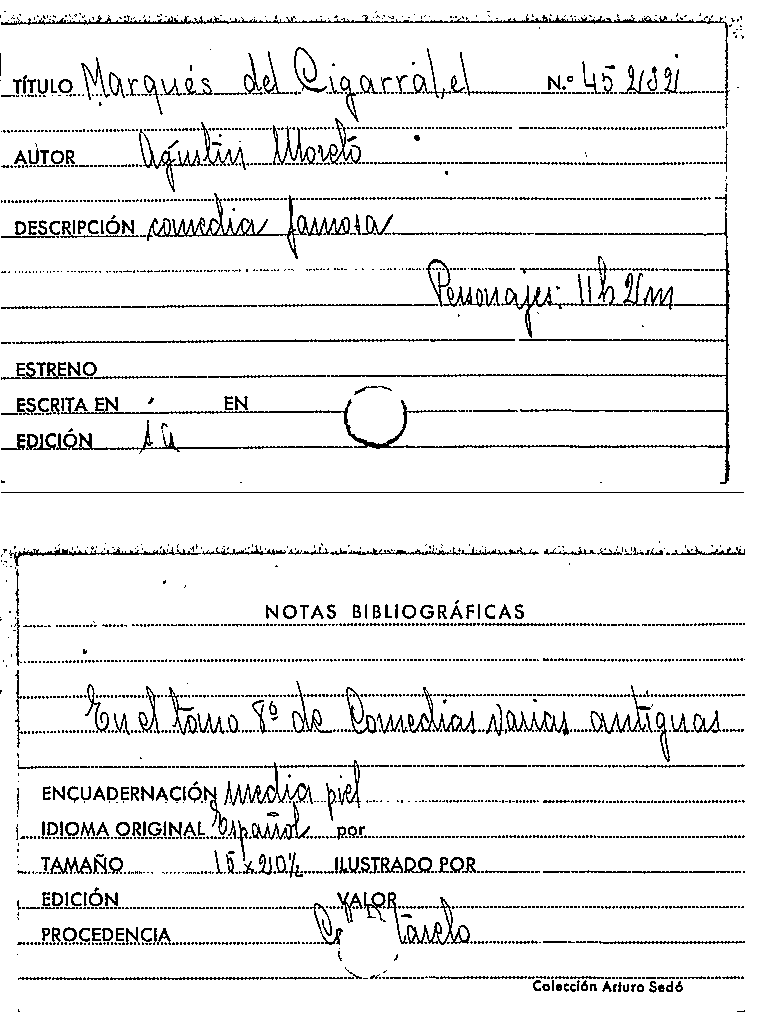 TÍTULO Marqués del Cigarral, el N.º 45282
AUTOR Agustín Moreto
DESCRIPCIÓN comedia famosa
Personajes: 11h 2m
ESTRENO
ESCRITA EN EN
EDICIÓN
NOTAS BIBLIOGRÁFICAS
En el tomo 8º de Comedias varias antíguas
ENCUADERNACIÓN media piel
IDIOMA ORIGINAL Español por
TAMAÑO 15 x 20½ ILUSTRADO POR
EDICIÓN VALOR
PROCEDENCIA
Colección Arturo Sedó